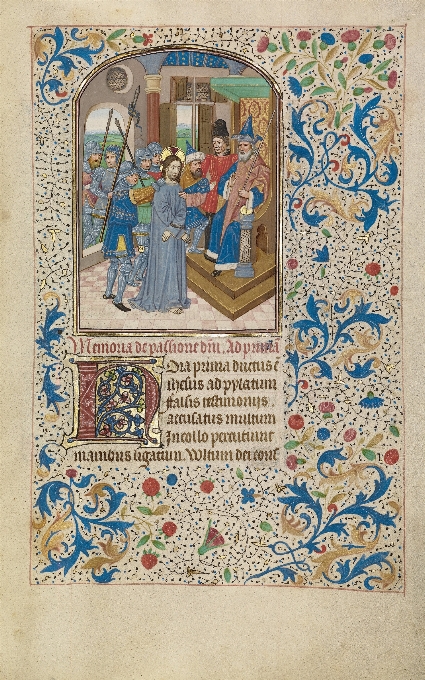 Memoria de passione dni. Ad primā
Hora prima ductus ē
ihesus ad pylatum
falsis testimonijs
accusatus multum
In collo percutiunt
manibus ligatum. Vultum dei cons